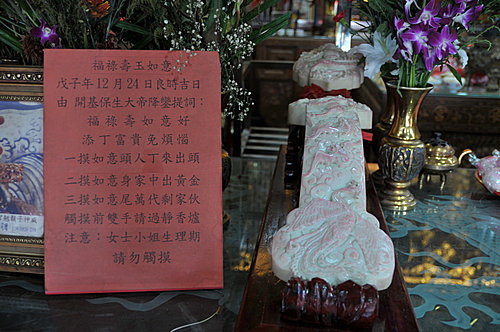 福祿壽玉如意
戊子年12月24日良時吉日
由 開基保生大帝降鑾提詞:
福祿壽如意好
添丁富貴免煩惱
一摸如意頭人丁來出頭
二摸如意身家中出黃金
三摸如意尾萬代剩家伙
觸摸前雙手請過靜香爐
注意:女士小姐生理期
請勿觸摸